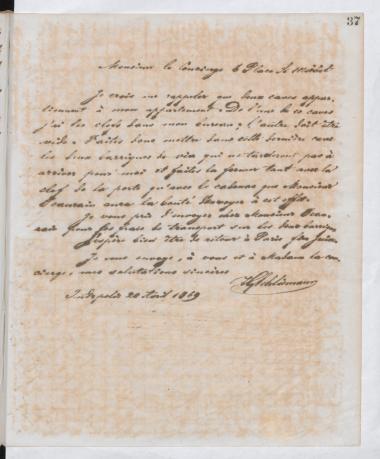 37
Monsieur le Concierge 6 Place St Michel
Je crois me rappeler que deux caves appar-
tiennent à mon appartement. De l'une de ces caves
j'ai les clefs dans mon bureau; l'autre doit être
vide. Faites donc mettre dans cette dernière cave
les deux barriques de vin qui ne tarderont pas à
arriver pour moi et faites la fermer tant avec la
clef de la porte qu'avec le cadenas que Monsieur
Beaurain aura la bonté d'envoyer à cet effet.
Je vous prie d'envoyer chez Monsieur Beau-
rain pour les frais de transport sur les deux barriques
J'espère bien être de retour à Paris fin Juin.
Je vous envoye, à vous et à Madame la con-
cierge, mes salutations sincères
HySchliemann
Indianapolis 20 Avril 1869